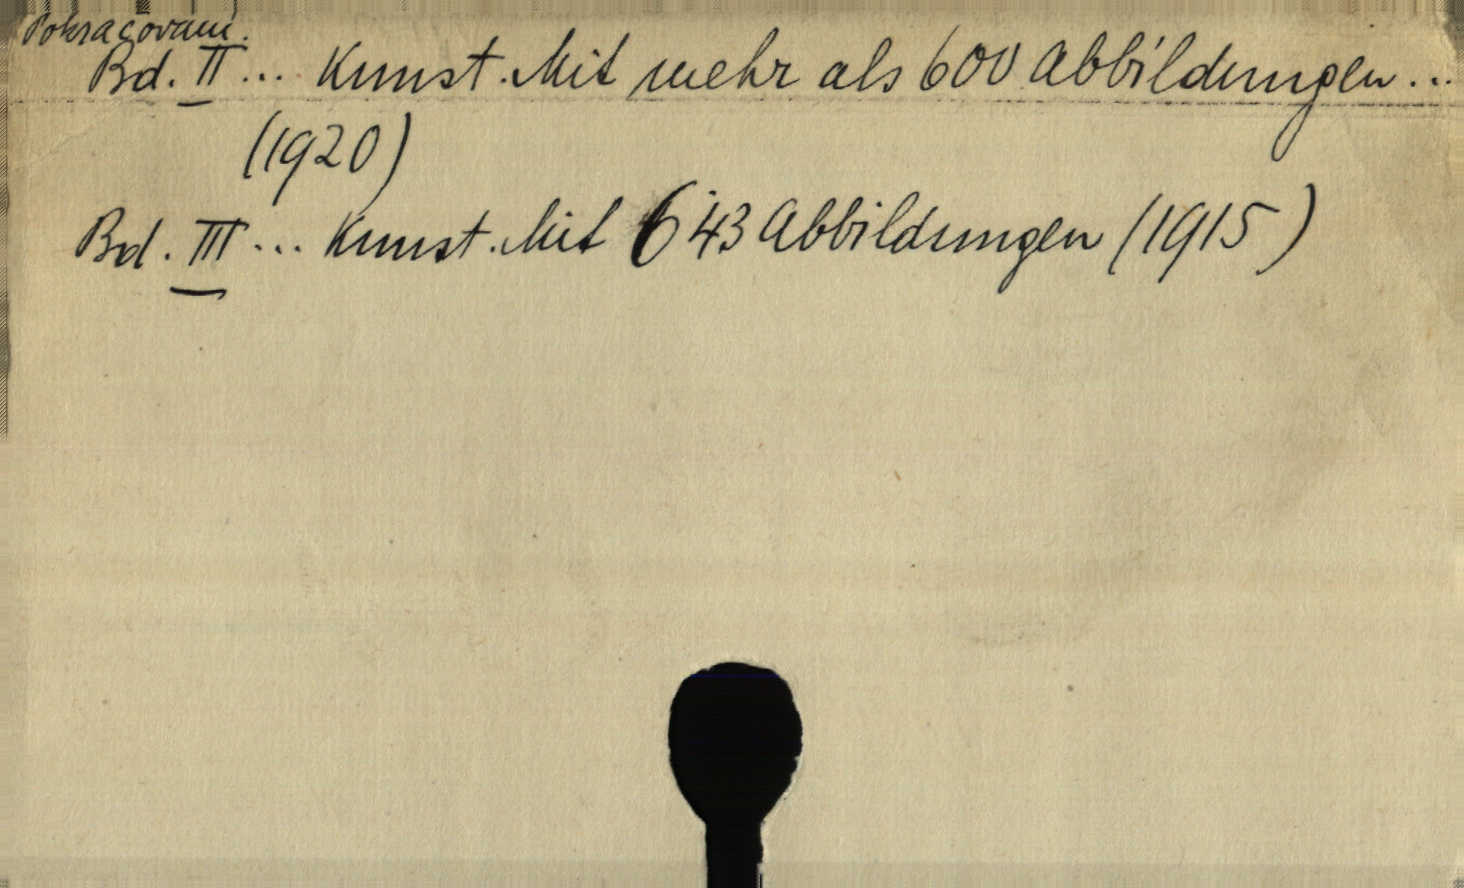 Pokračování.
Bd. II... Kunst. Mit mehr als 600 Abbildungen...
(1920)
Bd. III... Kunst. Mit 643 Abbildungen (1915)